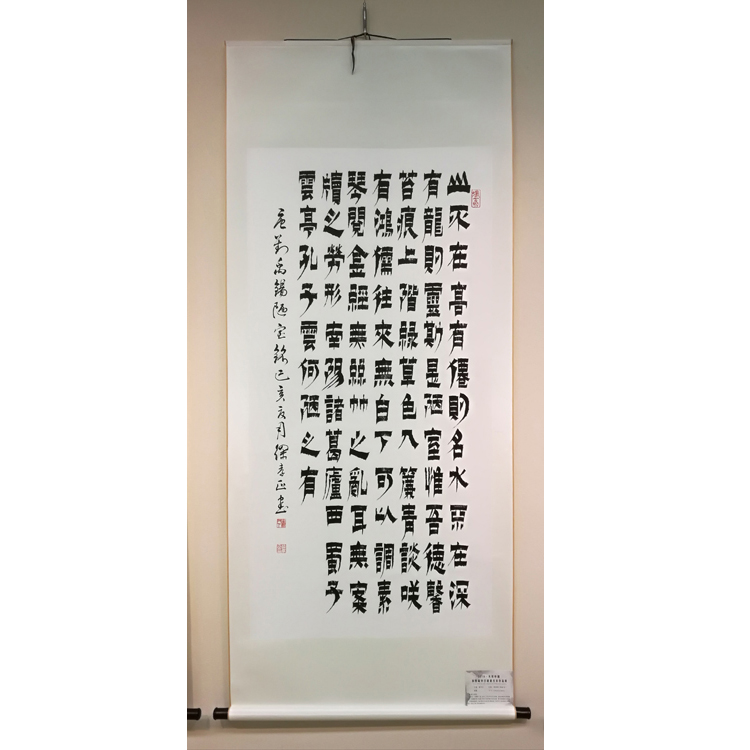 山不在高有僊則名水不在深
有龍則靈斯是陋室惟吾德馨
苔痕上階綠草色入簾青談咲
有鴻儒往來無白丁可以調素
琴閱金經無絲竹之亂耳無案
牘之勞形南陽諸葛廬西蜀子
雲亭孔子雲何陋之有
唐劉禹錫陋室銘己亥夏月書